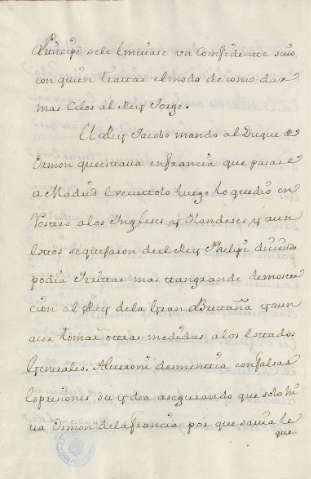 Principe se le embiase un Confidente suio
con quien tratar el modo de como dar
mas Celos al Rey Jorge.
El Rey Jacobo mando al Duque de
Ormon que estava en francia que pasase
a Madrid executolo luego lo que dio en
a los Ingleses y Olandeses y aun
se quejaron de el Rey Phelipe
podia tan grande demostra
cion al Rey de la Gran Bretaña y aun
a tomar otras medidas a los Estados
Generales. Alveroni desmentia con falsas
Expresiones su yda asegurando que solo
ua Ormon de la francia por que savia le
que